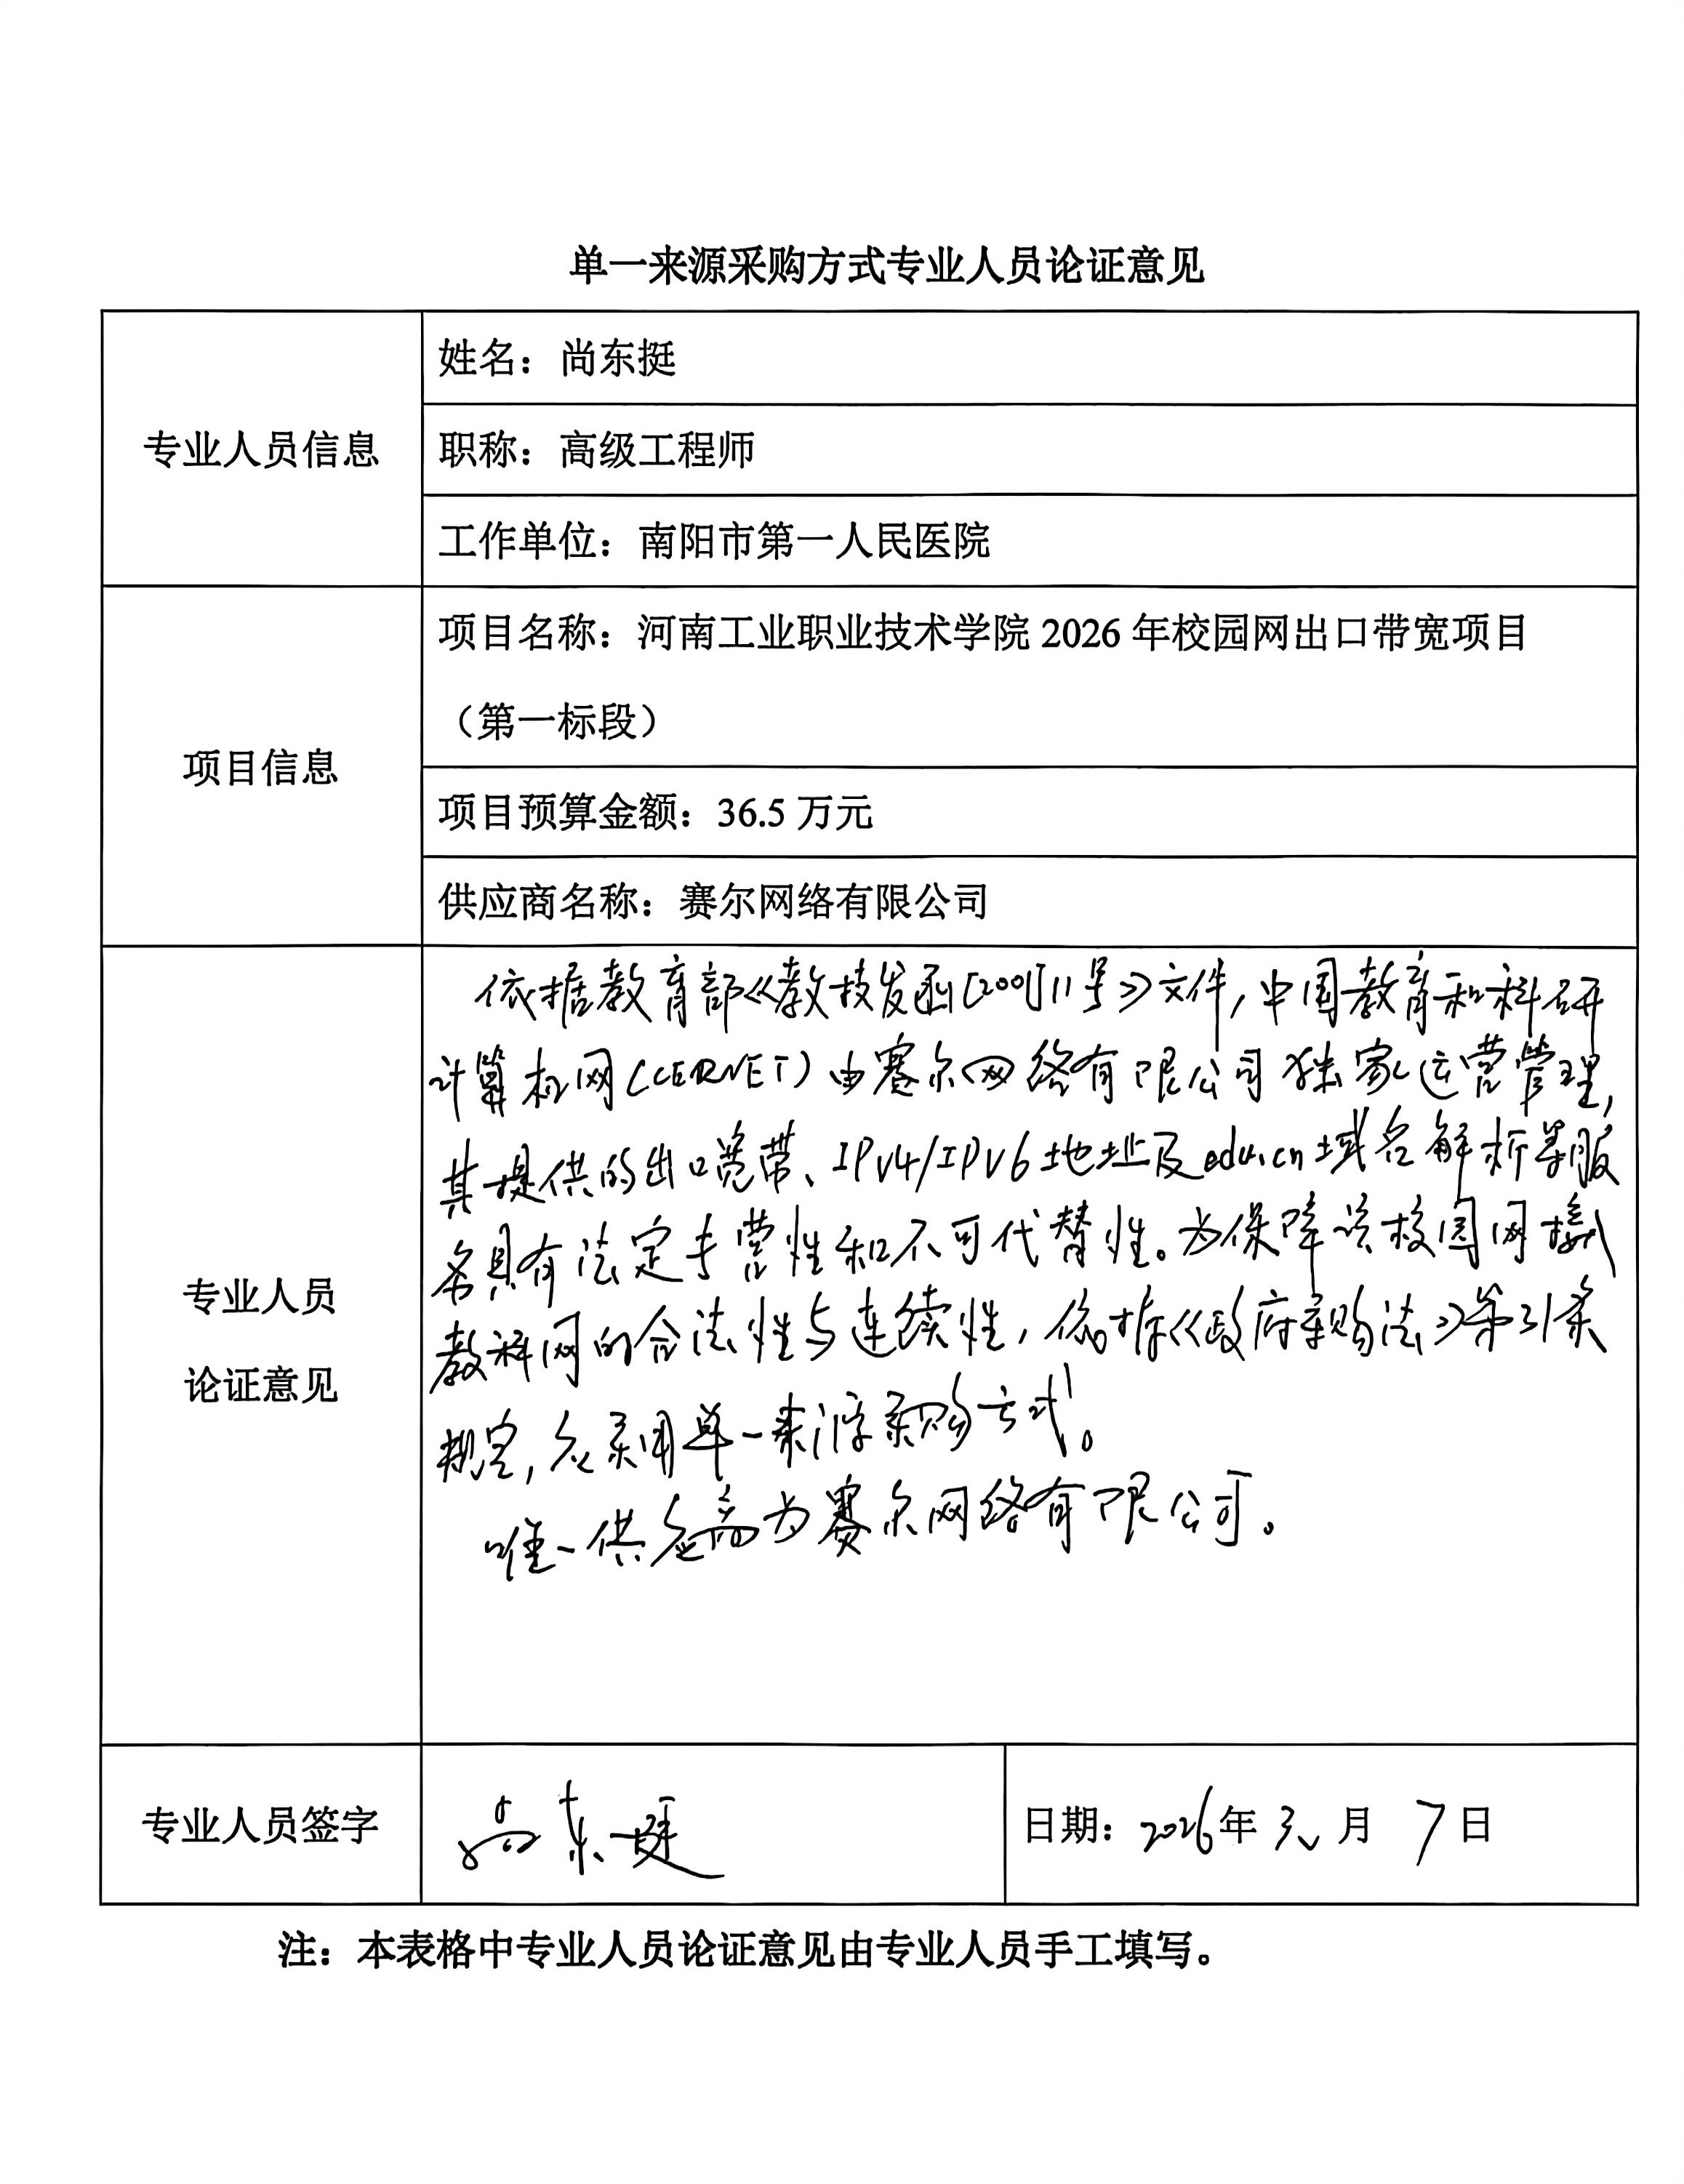 单一来源采购方式专业人员论证意见
专业人员信息
姓名：尚东挺
职称：高级工程师
工作单位：南阳市第一人民医院
项目信息
项目名称：河南工业职业技术学院 2026 年校园网出口带宽项目
（第一标段）
项目预算金额：36.5 万元
供应商名称：赛尔网络有限公司
专业人员
论证意见
依据教育部《教技发函[2001]11号》文件，中国教育和科研
计算机网(CERNET)由赛尔网络有限公司独家运营管理，
其提供的出口宽带、IPV4/IPV6地址及edu.cn域名解析等服
务具有法定专营性和不可代替性。为保障该校园网接入
教科网的合法性与连续性，依据《政府采购法》第31条
规定，应采用单一来源采购方式。
唯一供应商为赛尔网络有限公司。
专业人员签字
尚东挺
日期：2026年 3 月 7日
注：本表格中专业人员论证意见由专业人员手工填写。